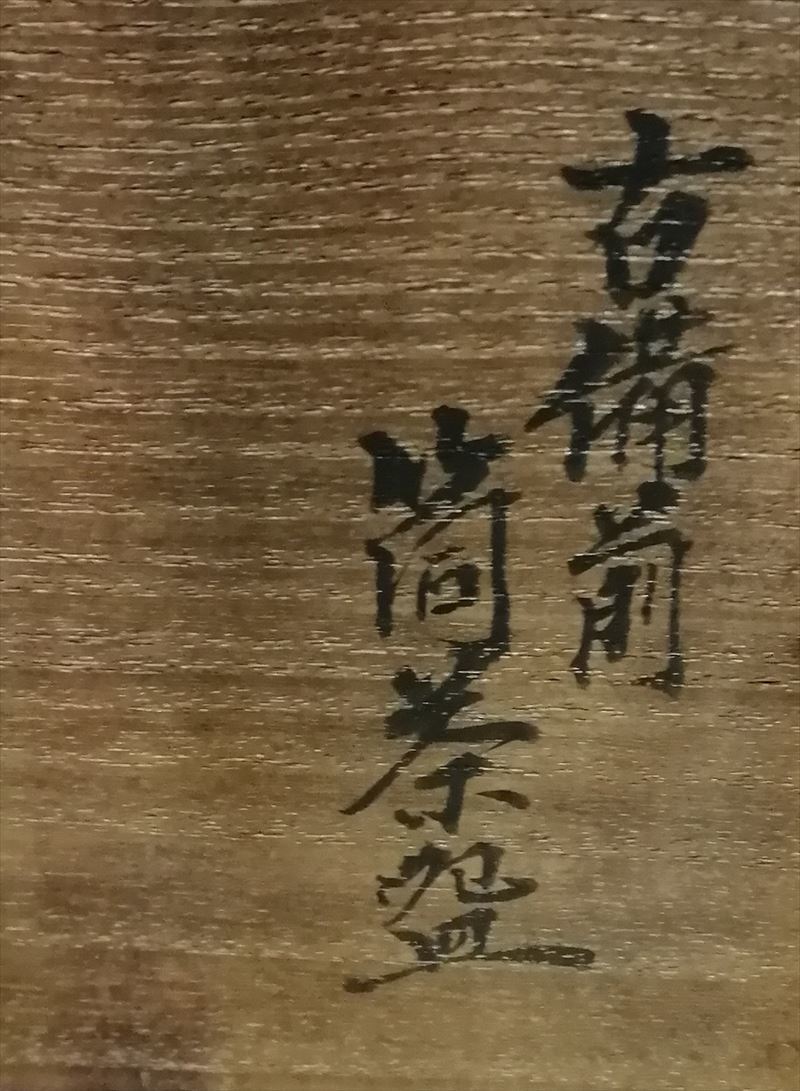 古備前
筒茶盌